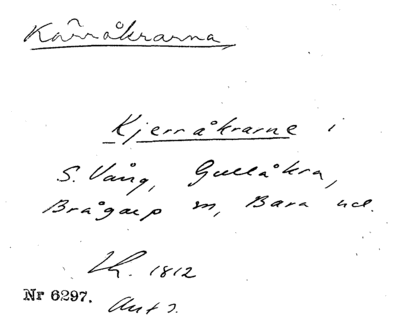 Kärråkrarna,
Kjerråkrarne i
S. Vång, Gullåkra,
Brågarp sn, Bara hd.
Lh. 1812
Nr 6297. Ant 2.